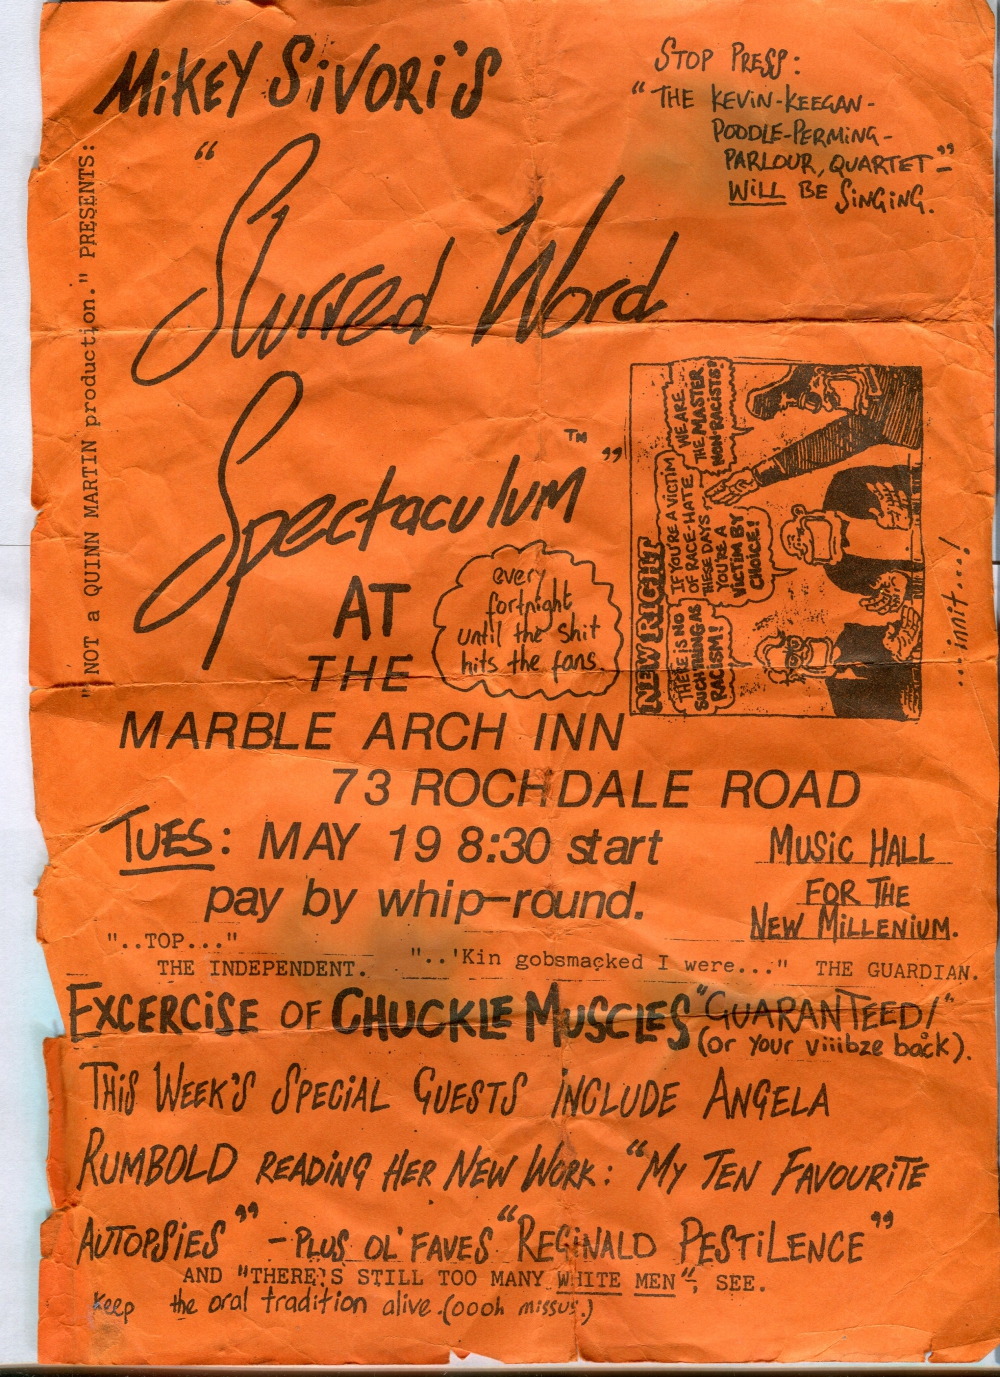 MIKEY SIVORI'S
STOP PRESS:
"THE KEVIN-KEEGAN-
POODLE-PERMING-
PARLOUR, QUARTET"-
WILL BE SINGING.
"NOT a QUINN MARTIN production." PRESENTS:
"Slurred Word
Spectaculum™"
AT
every
fortnight
until the shit
hits the fans
THE
NEW RIGHT
THERE IS NO
SUCH THING AS
RACISM!
IF YOU'RE A VICTIM
OF RACE-HATE
THESE DAYS
YOU'RE A
VICTIM BY
CHOICE!
WE ARE
THE MASTER
NON-RACISTS!
...innit...!
MARBLE ARCH INN
73 ROCHDALE ROAD
TUES: MAY 19 8:30 start
pay by whip-round.
MUSIC HALL
FOR THE
NEW MILLENIUM.
"..TOP..."
THE INDEPENDENT.
"..'Kin gobsmacked I were..." THE GUARDIAN.
EXCERCISE OF CHUCKLE MUSCLES "GUARANTEED!"
(or your viiibze back).
THIS WEEK'S SPECIAL GUESTS INCLUDE ANGELA
RUMBOLD READING HER NEW WORK: "MY TEN FAVOURITE
AUTOPSIES" - PLUS OL' FAVES "REGINALD PESTILENCE"
AND "THERE'S STILL TOO MANY WHITE MEN", SEE.
Keep the oral tradition alive.(oooh missus.)